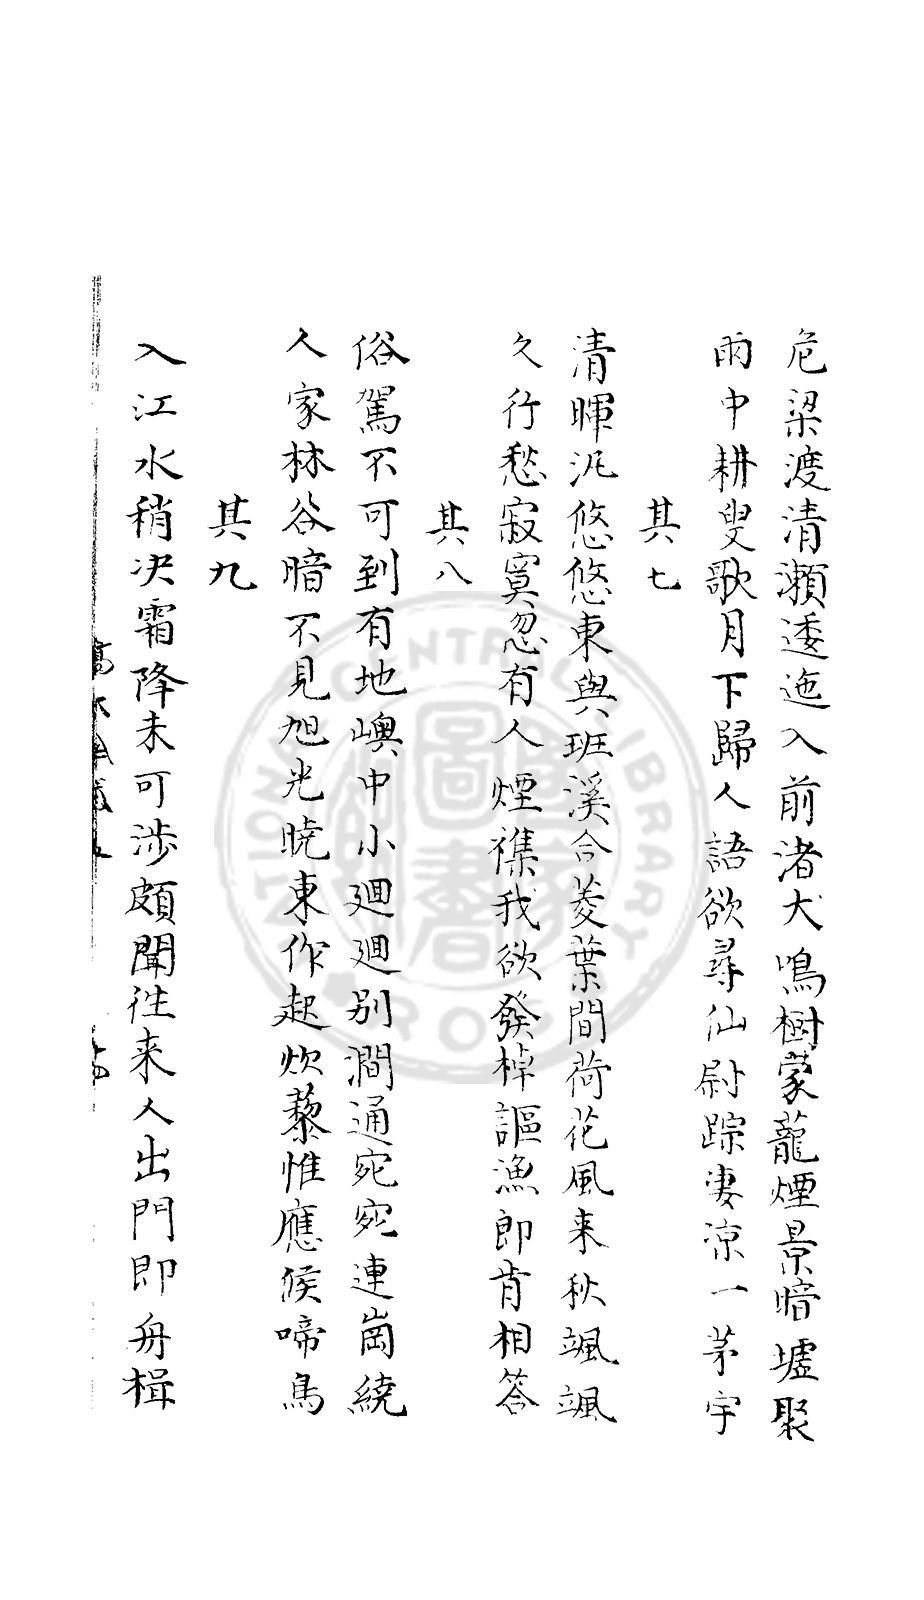 危梁渡清瀬逶迤入前渚犬鳴樹蒙蘢煙景暗墟聚
雨中耕叟歌月下歸人語欲尋仙尉踪凄凉一茅宇
其七
清暉汎悠悠東與班溪合菱葉間荷花風来秋颯颯
久行愁寂寞忽有人煙襍我欲發棹謳漁郎肯相答
其八
俗駕不可到有地嶼中小廻廻别澗通宛宛連崗繞
人家林谷暗不見旭光曉東作起炊藜惟應候啼鳥
其九
入江水稍决霜降未可涉頗聞徃来人出門即舟楫
NATIONAL CENTRAL LIBRARY
R.O.C
國家圖書館